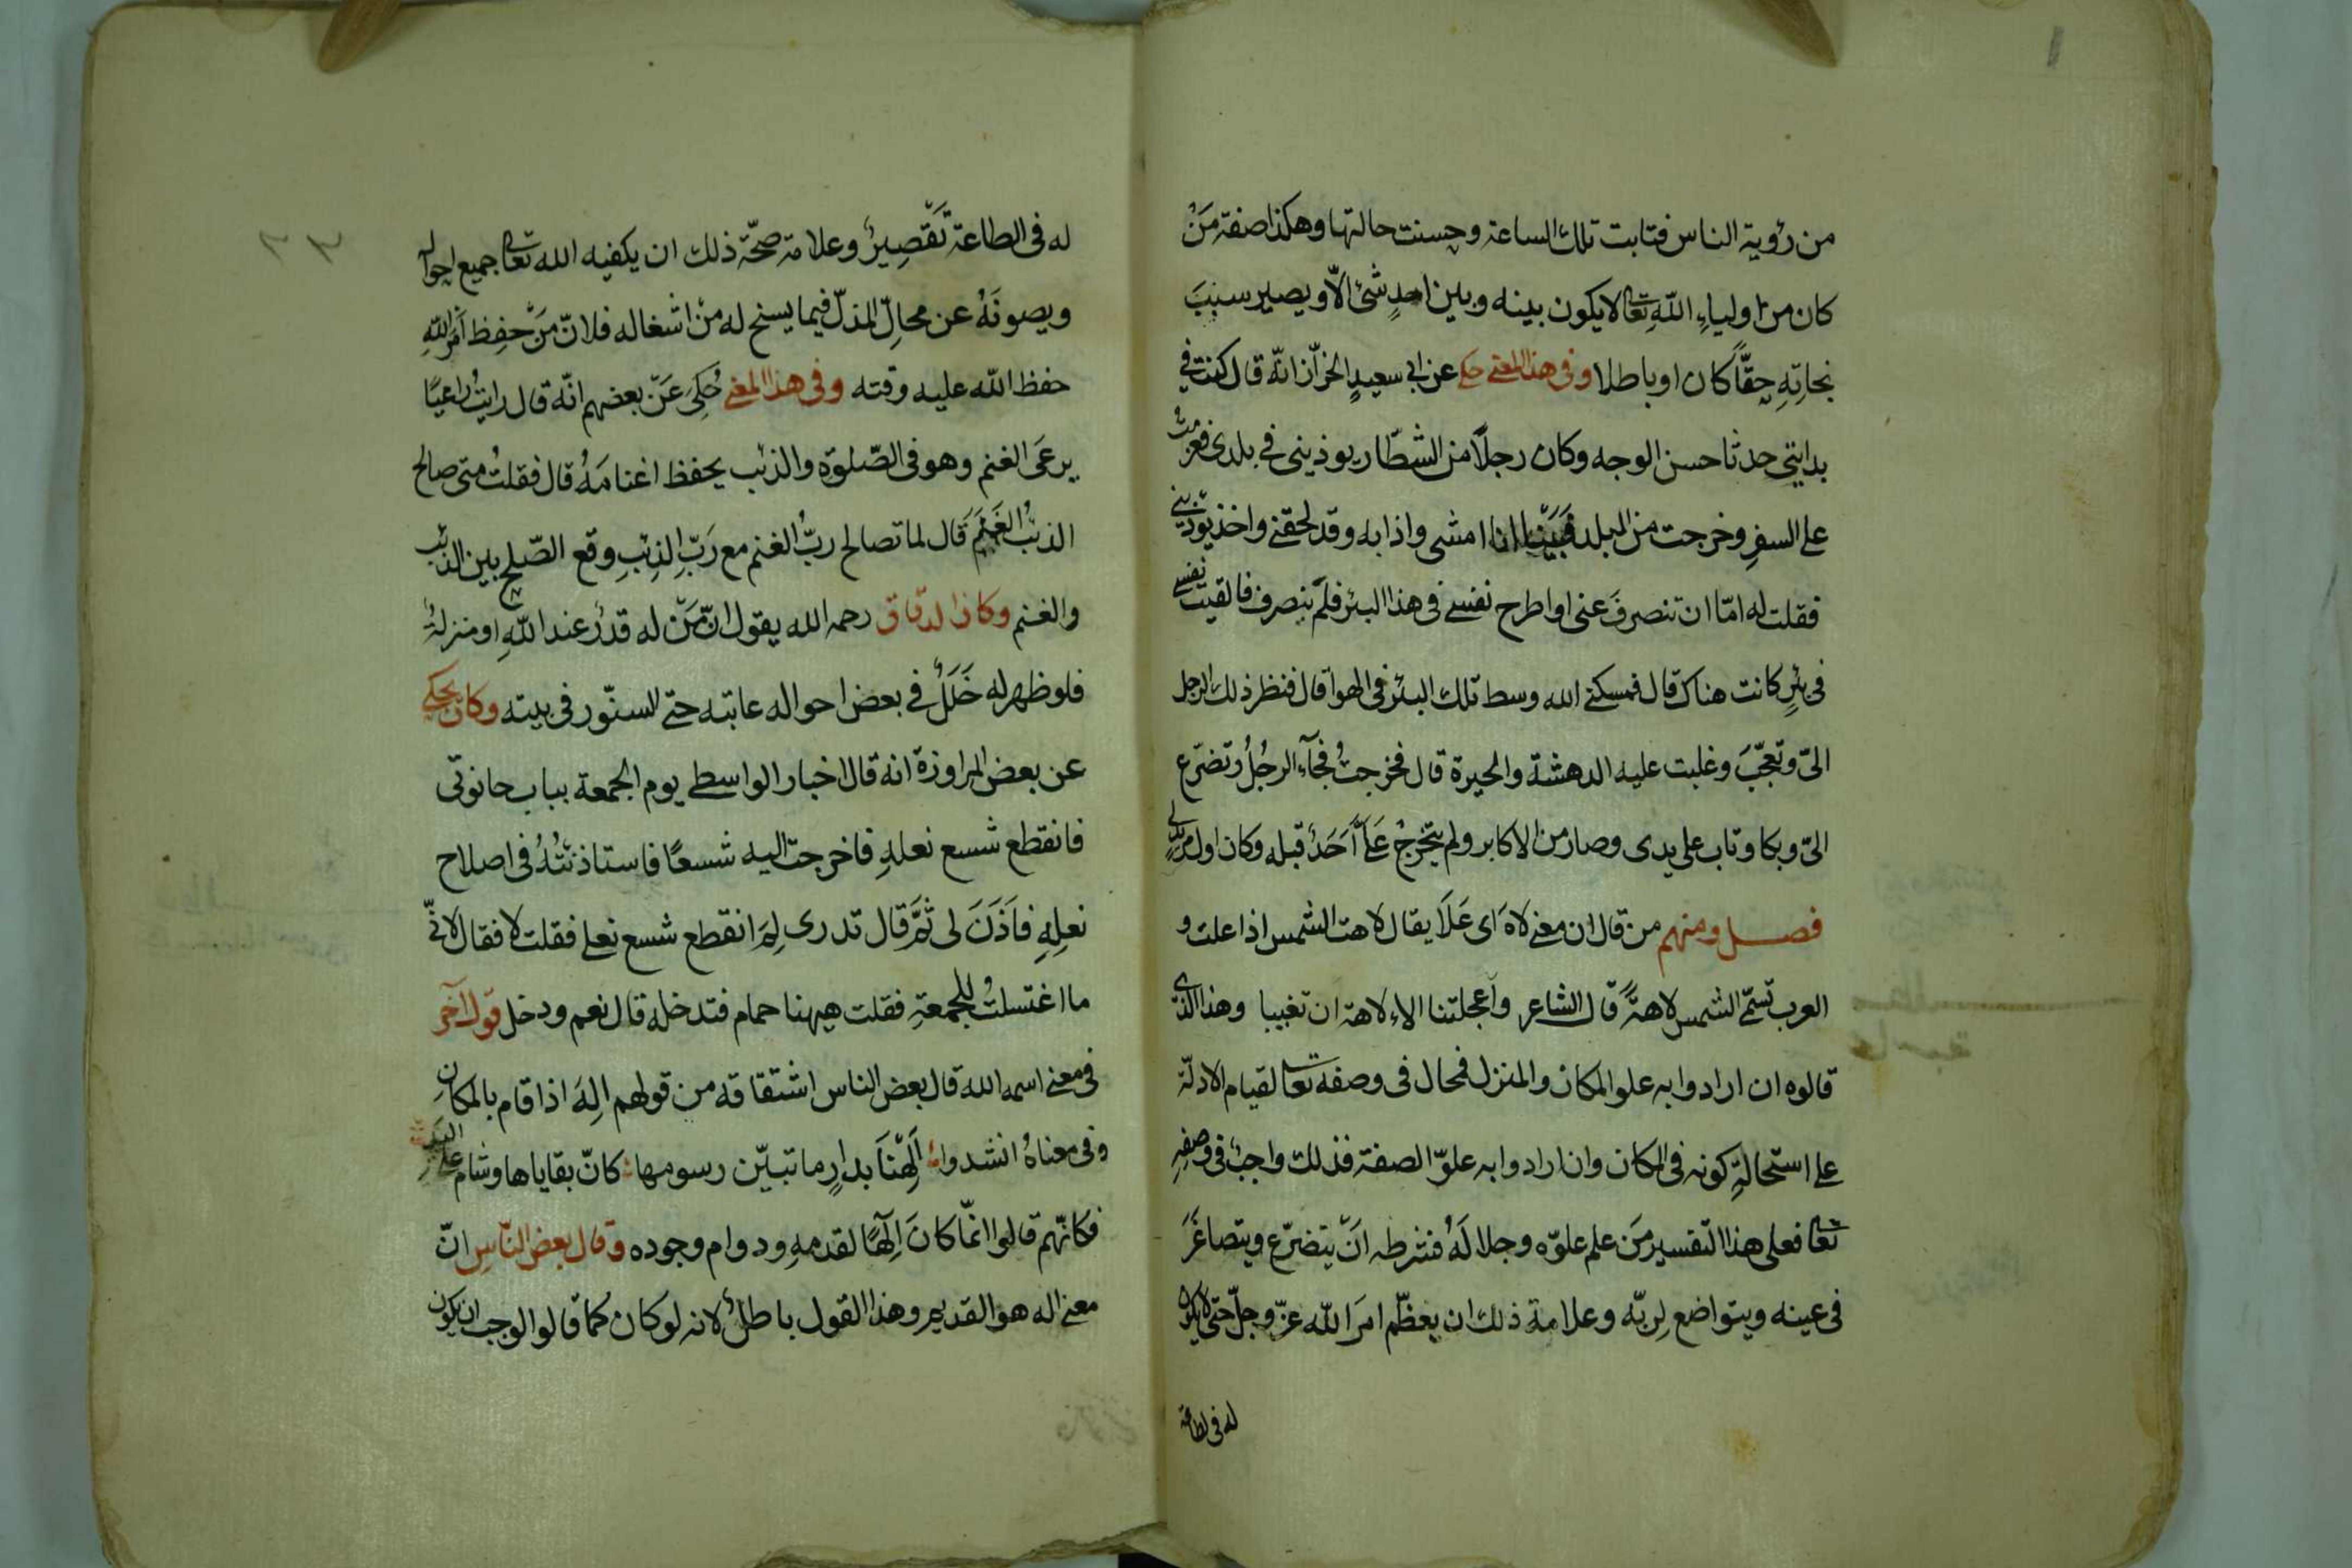 من رؤية الناس فتابت تلك الساعة وحسنت حالتها وهكذا صفة مَنْ
كان من اولياءِ اللهِ تعالى لا يكون بينه وبين احدٍ شئ الّا ويصير سببَ
نجاتِهِ حقًّا كان او باطلا وفى هذا المعنى حكى عن ابى سعيدٍ الخرّاز انّه قال كنت فى
بدايتى حدثا حسن الوجه وكان رجلًا من الشطّار يوذينى فى بلدى فعزمتُ
على السفرِ وخرجت من البلد فَبَيْنا انا امشى واذا به وقد لحقنى واخذ يوذينى
فقلت له امّا ان تنصرفَ عنى او اطرح نفسى فى هذا البئر فلَم ينصرف فالقيت نفسى
فى بئرٍ كانت هناك قال فمسكنى الله وسط تلك البئر فى الهوا قال فنظر ذلك الرجل
الىّ وتعجّبَ وغلبت عليه الدهشة والحيرة قال فخرجتُ فجآء الرجُلُ وتضرّع
الىّ وبكا وتاب على يدى وصار من الاكابر ولم يتخرجْ عَلَىَّ اَحَدٌ قبله وكان اول مريدٍ لى
فصل ومنهم من قال ان معنى لاهَ اى عَلَا يقال لاهت الشمس اذا علت و
العرب تسمّى الشمس لاهةً قال الشاعر واَعجلتنا الاِلاهة ان تغيبا وهذا الذى
قالوه ان ارادوا به علو المكان والمنزل فمحال فى وصفه تعالى لقيام الادلّة
على استحالةِ كونه فى المكان وان ارادوا به علوّ الصفة فذلك واجبٌ فى وصفِهِ
تعالى فعلى هذا التفسير مَن علم علوّه وجلالَهُ فشرطه اَنْ يتضرّع ويتصاغَرَ
فى عينه ويتواضع لِربّه وعلامة ذلك ان يعظّم امرَ الله عزّ وجلّ حتى لا يكون
له فى الطاعة
له فى الطاعة تَقْصِيرٌ وعلامة صحّة ذلك ان يكفيه الله تعالى جميع احواله
ويصونَهُ عن محالِّ المذلّ فيما يسنح له منْ اشغاله فلانّ مَنْ حفِظ اَمْرَ اللهِ
حفظ الله عليه وقته وفى هذا المعنى حُكِىَ عَنْ بعضهم انّه قال رايتُ راعيًا
يرعَى الغنم وهو فى الصّلوة والذئب يحفظ اغنامَهُ قال فقلتُ متى صالح
الذئبُ الغَنَمَ قَال لما تصالح ربُّ الغنم مع رَبِّ الذِئبِ وقع الصّلح بين الذئب
والغنم وكان الدقاق رحمه الله يقول انّ مَنْ له قدرٌ عند اللهِ او منزلةٌ
فلو ظهر له خَلَلٌ فى بعض احواله عاتبه حتى السنّور فى بيته وكان يحكى
عن بعض المراوزة انه قال اختار الواسطى يوم الجمعة بباب حانوتى
فانقطع شسع نعلهِ فاخرجت اليه شسعًا فاستاذنتُهُ فى اصلاح
نعلِهِ فاَذَنَ لى ثمَّ قال تدرى لِمَ انقطع شسع نعلى فقلت لا فقال لانّى
ما اغتسلتُ للجمعةِ فقلت هيهنا حمام فتدخله قال نعم ودخل قول آخر
فى معنى اسمه الله قال بعض الناس اشتقاقه من قولهم اِلهَ اذا قام بالمكان
وفى معناهُ انشدوا اَلِهْنَا بدارٍ ما تبيّن رسومها كانّ بقاياها وشام على اليد
فكانّهم قالوا انمّا كانَ اِلٰهًا لقدمهِ ودوام وجوده وقال بعض النّاسِ انّ
معنى اله هو القديم وهذا القول باطلٌ لانه لو كان كما قالوا لوجب ان يكون